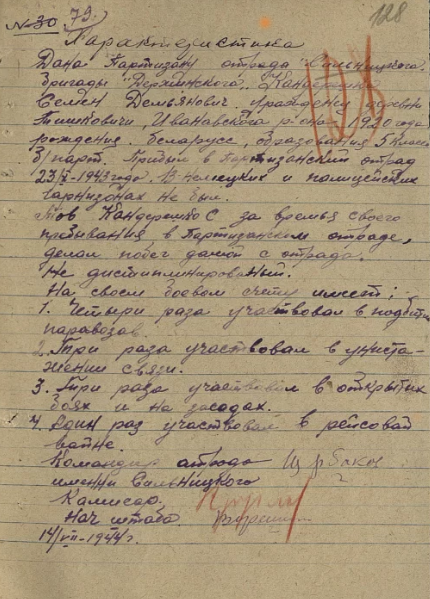 № 30 73 128
Характеристика
Дана Партизан отряда Сильницкого
бригады "Держинского"
Семен Демьянович, урожденец деревни
Тишковичи, Ивановского р-она, 1920 года
рождения, беларусс, образования 5 класс
б/парт. Прибыл в Партизанский отряд
1943 года. В немецких и полицейских
гарнизонах не был.
Тов С за время своего
пребывания в Партизанском отряде,
делал побег домой с отряда.
Не дистиплинированный.
На своем боевом счету имеет:
1. Четыри раза участвовал в подбитии
паравозов.
2. Три раза участвовал в унистажении
связи.
3. Три раза участвовал в открытых
боях и на засадах.
4. Един раз участвовал в рейсовай
вайне.
Командир атряда
имени Сильницкого
Камисар.
Нач штаба
14/VII-1944г.